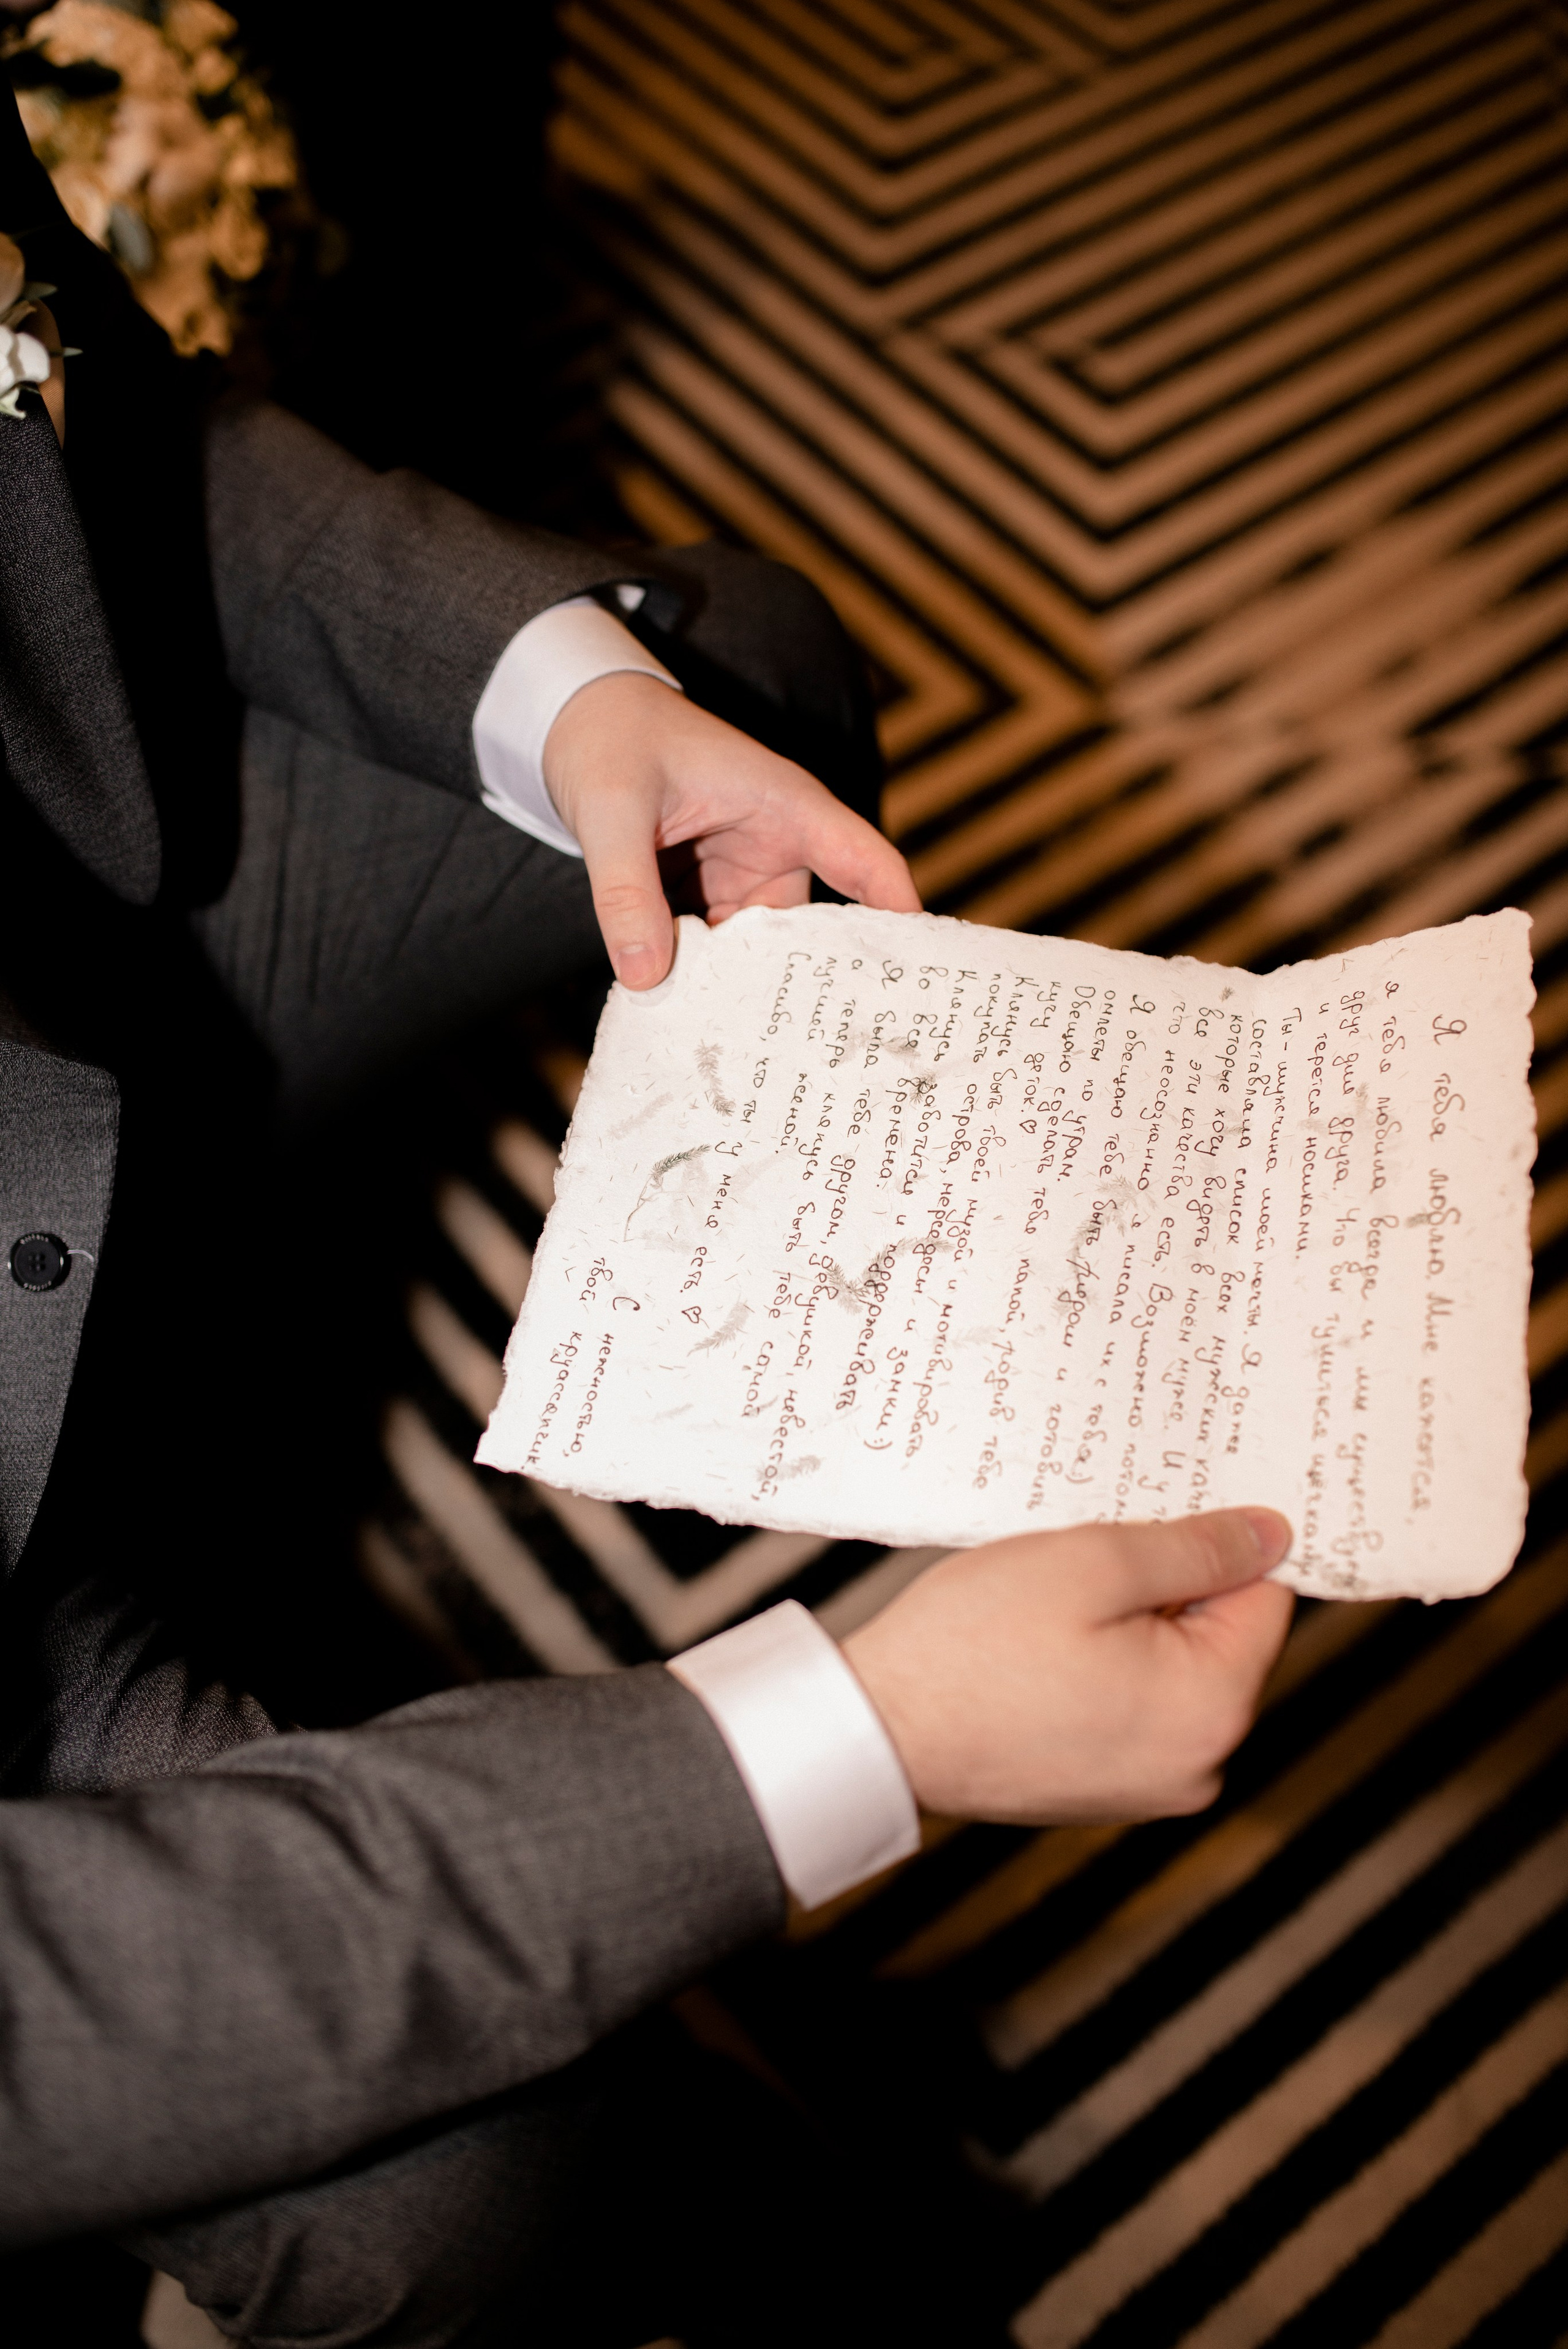 Я тебя люблю. Мне кажется,
я тебя любила всегда и мы существуем
друг для друга. Чтобы тушиться щёчками
и тереться носиками.
Ты - мужчина моей мечты. Я даже
составляла список всех мужских
которые хочу видеть в моём муже. И у
все эти качества есть. Возможно потом
что неосознанно я писала их с тебя:)
Я обещаю тебе быть рядом и готовить
омлеты по утрам.
Обещаю сделать тебя папой, родив тебе
кучу деток.♡
Клянусь быть твоей музой и мотивировать
покупать острова, мерседесы и замки:)
Клянусь заботится и поддерживать
во все времена.
Я была тебе другом, девушкой, невестой,
а теперь клянусь быть тебе самой
лучшей женой.
Спасибо, что ты у меня есть ♡
С нежностью,
твой круассанчик.